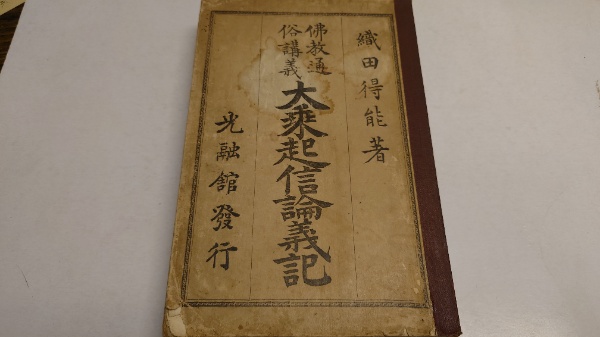 織田得能著
佛教通
俗講義
大乘起信論義記
光融館發行